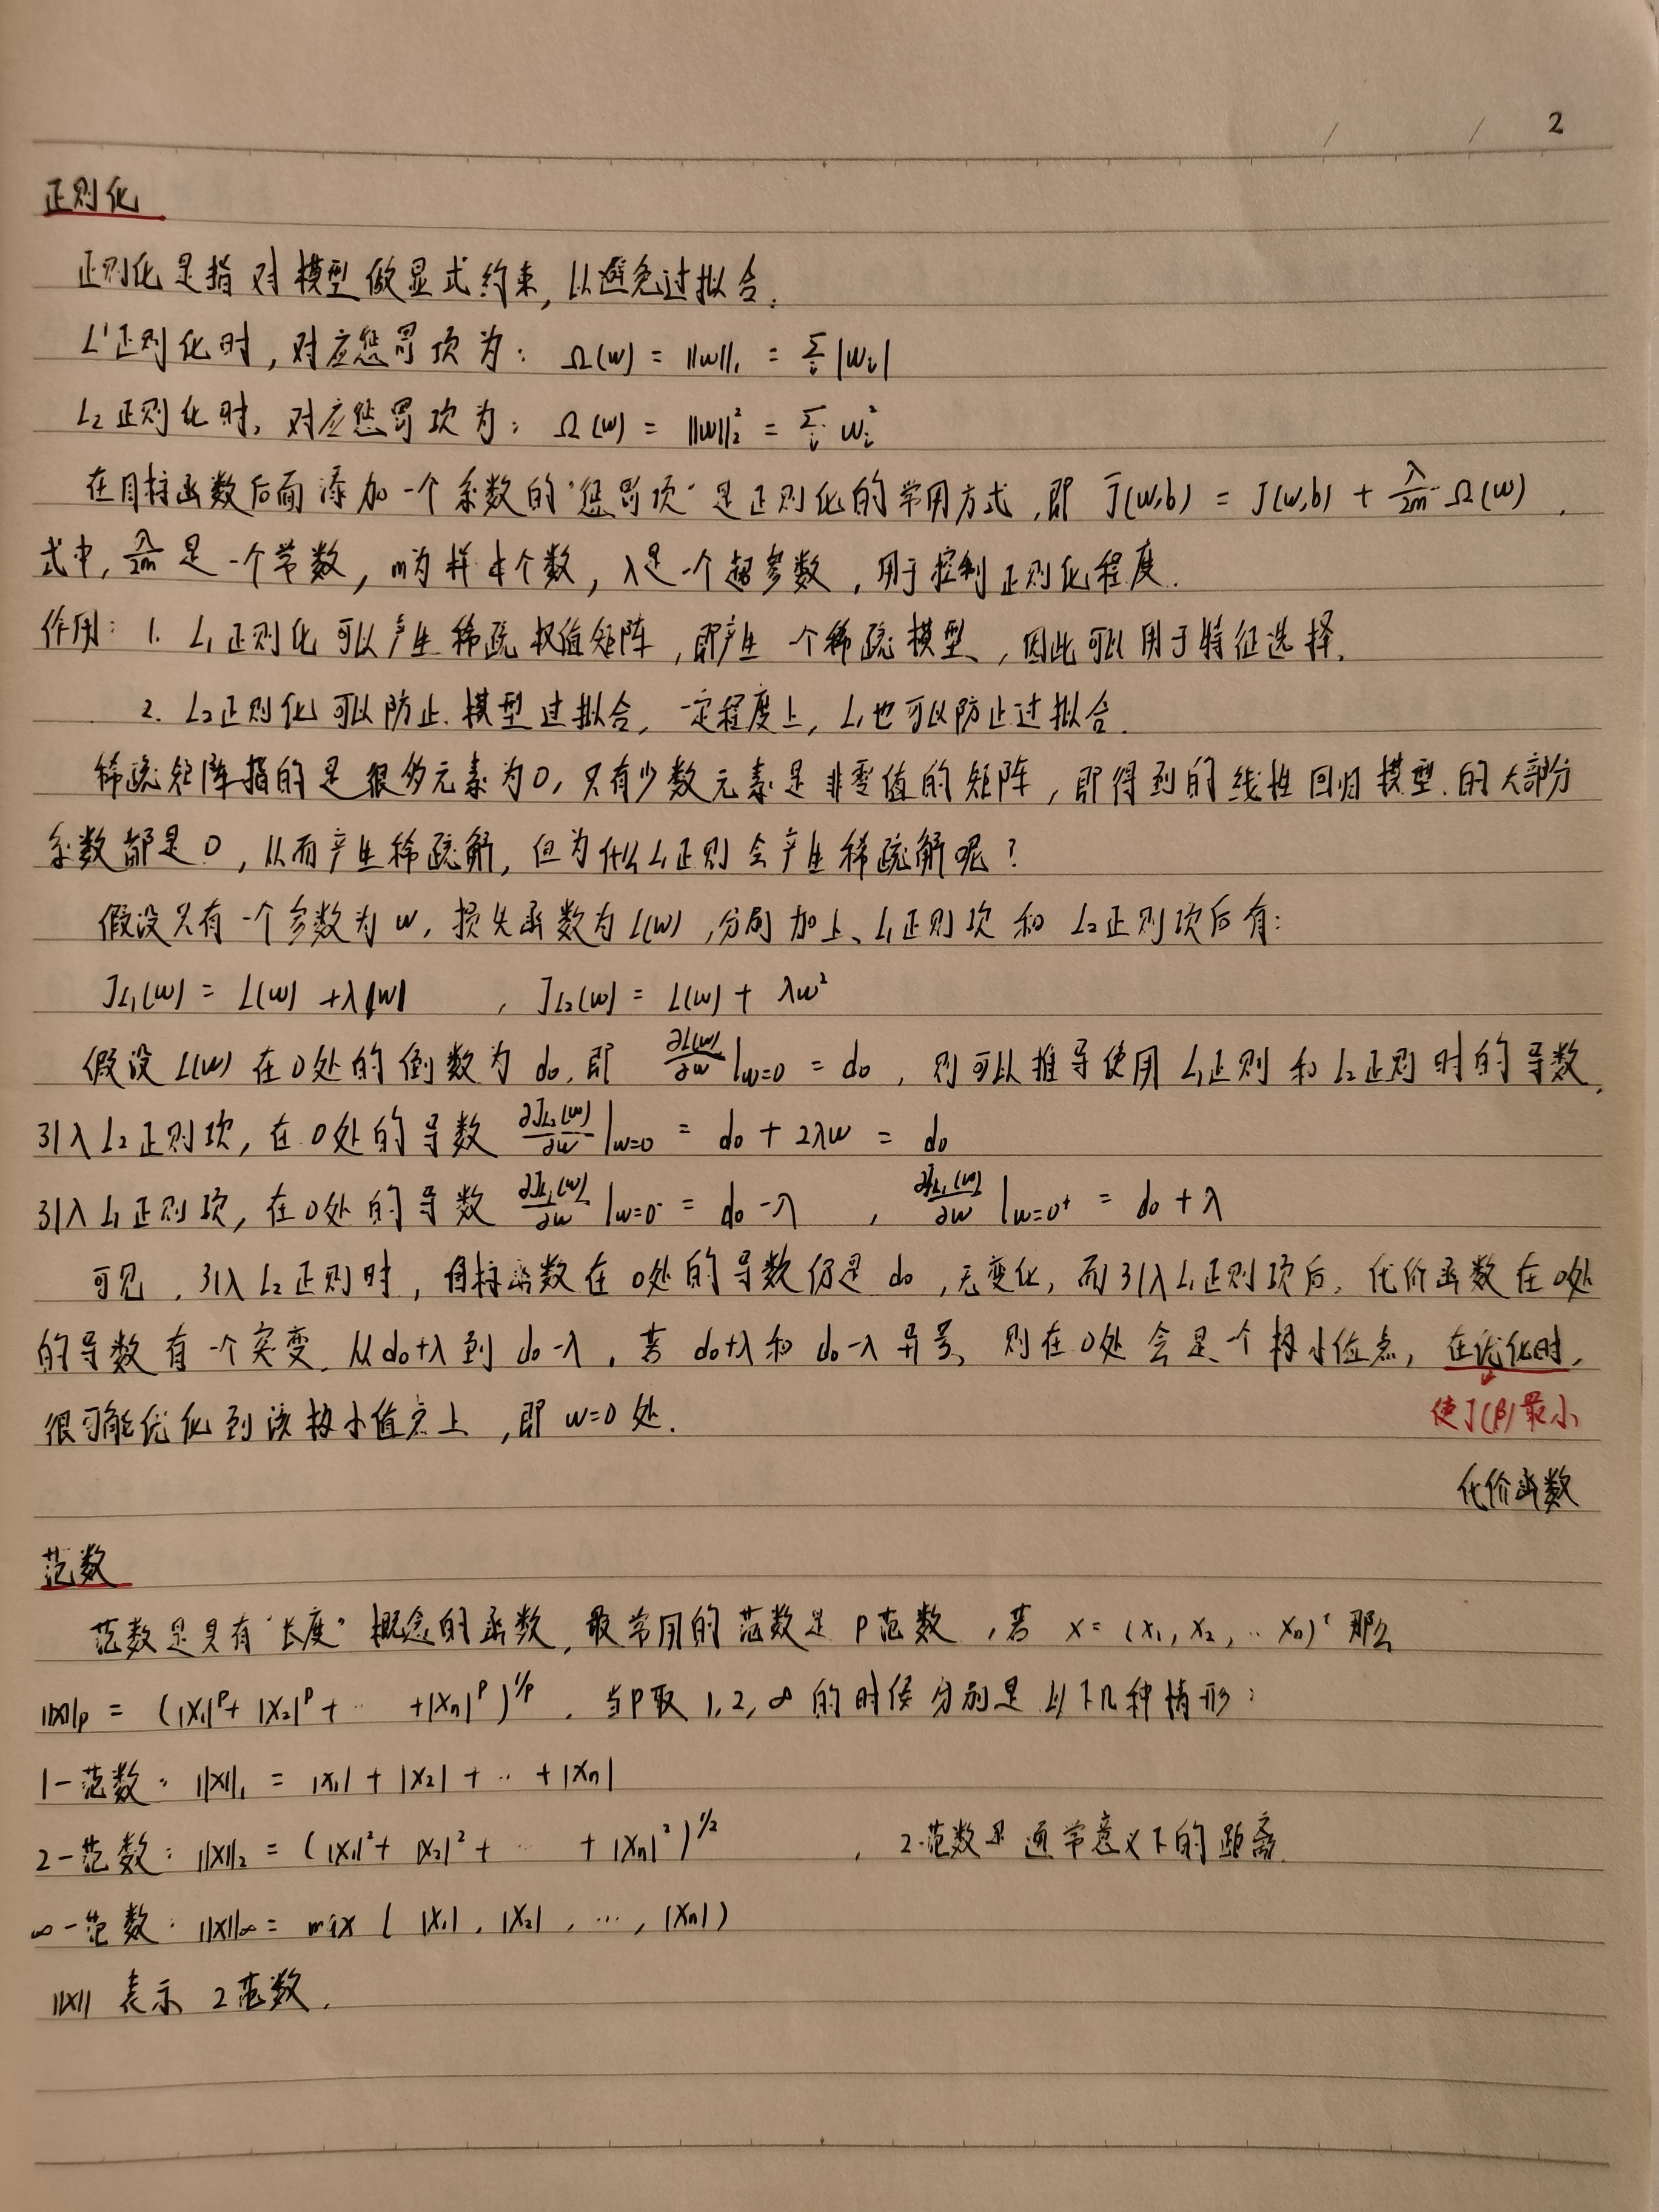 2
正则化
正则化是指对模型做显式约束,以避免过拟合.
L¹正则化时,对应惩罚项为: Ω(w) = ||w||₁ = Σᵢ |wᵢ|
L₂正则化时,对应惩罚项为: Ω(w) = ||w||₂² = Σᵢ wᵢ²
在目标函数后面添加一个系数的“惩罚项”是正则化的常用方式,即 J̃(w,b) = J(w,b) + λ/2m Ω(w) ,
式中, λ/2m 是一个常数, m为样本个数, λ是一个超参数,用于控制正则化程度.
作用: 1. L₁正则化可以产生稀疏权值矩阵,即产生一个稀疏模型,因此可以用于特征选择.
2. L₂正则化可以防止模型过拟合,一定程度上, L₁也可以防止过拟合.
稀疏矩阵指的是很多元素为0,只有少数元素是非零值的矩阵,即得到的线性回归模型的大部分
系数都是0,从而产生稀疏解,但为什么L₁正则会产生稀疏解呢?
假设只有一个参数为w,损失函数为L(w),分别加上L₁正则项和L₂正则项后有:
J_L₁(w) = L(w) + λ|w| , J_L₂(w) = L(w) + λw²
假设L(w)在0处的倒数为d₀,即 ∂L(w)/∂w |w=0 = d₀ ,则可以推导使用L₁正则和L₂正则时的导数.
引入L₂正则项,在0处的导数 ∂J_L₂(w)/∂w |w=0 = d₀ + 2λw = d₀
引入L₁正则项,在0处的导数 ∂J_L₁(w)/∂w |w=0⁻ = d₀ - λ , ∂J_L₁(w)/∂w |w=0⁺ = d₀ + λ
可见,引入L₂正则时,目标函数在0处的导数仍是d₀,无变化,而引入L₁正则项后,代价函数在0处
的导数有一个突变.从d₀+λ到d₀-λ,若d₀+λ和d₀-λ异号,则在0处会是一个极小值点,在优化时,
很可能优化到该极小值点上,即w=0处.
使J(β)最小
代价函数
范数
范数是具有“长度”概念的函数,最常用的范数是P范数,若 x = (x₁, x₂, ‥ xₙ)ᵀ 那么
||x||ₚ = (|x₁|ᵖ + |x₂|ᵖ + ‥ + |xₙ|ᵖ)^1/p . 当P取1,2,∞的时候分别是以下几种情形:
1-范数: ||x||₁ = |x₁| + |x₂| + ‥ + |xₙ|
2-范数: ||x||₂ = (|x₁|² + |x₂|² + ‥ + |xₙ|²)^1/2 , 2-范数是通常意义下的距离.
∞-范数: ||x||∞ = max ( |x₁|, |x₂|, …, |xₙ|)
||x|| 表示2范数.